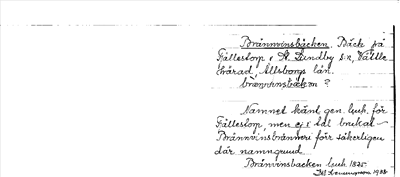 Brännvinsbäcken. Bäck på
Fjällestorp i St. Lundby s:n, Vättle
härad, Älfsborgs län.
brænvinsbäkən ?
Namnet känt gen. ljuk. för
Fjällestorp men ej i tal brukat
Brännvinsbränneri förr säkerligen
där namngrund.
Brännvinsbäcken ljuk. 1825.
1938